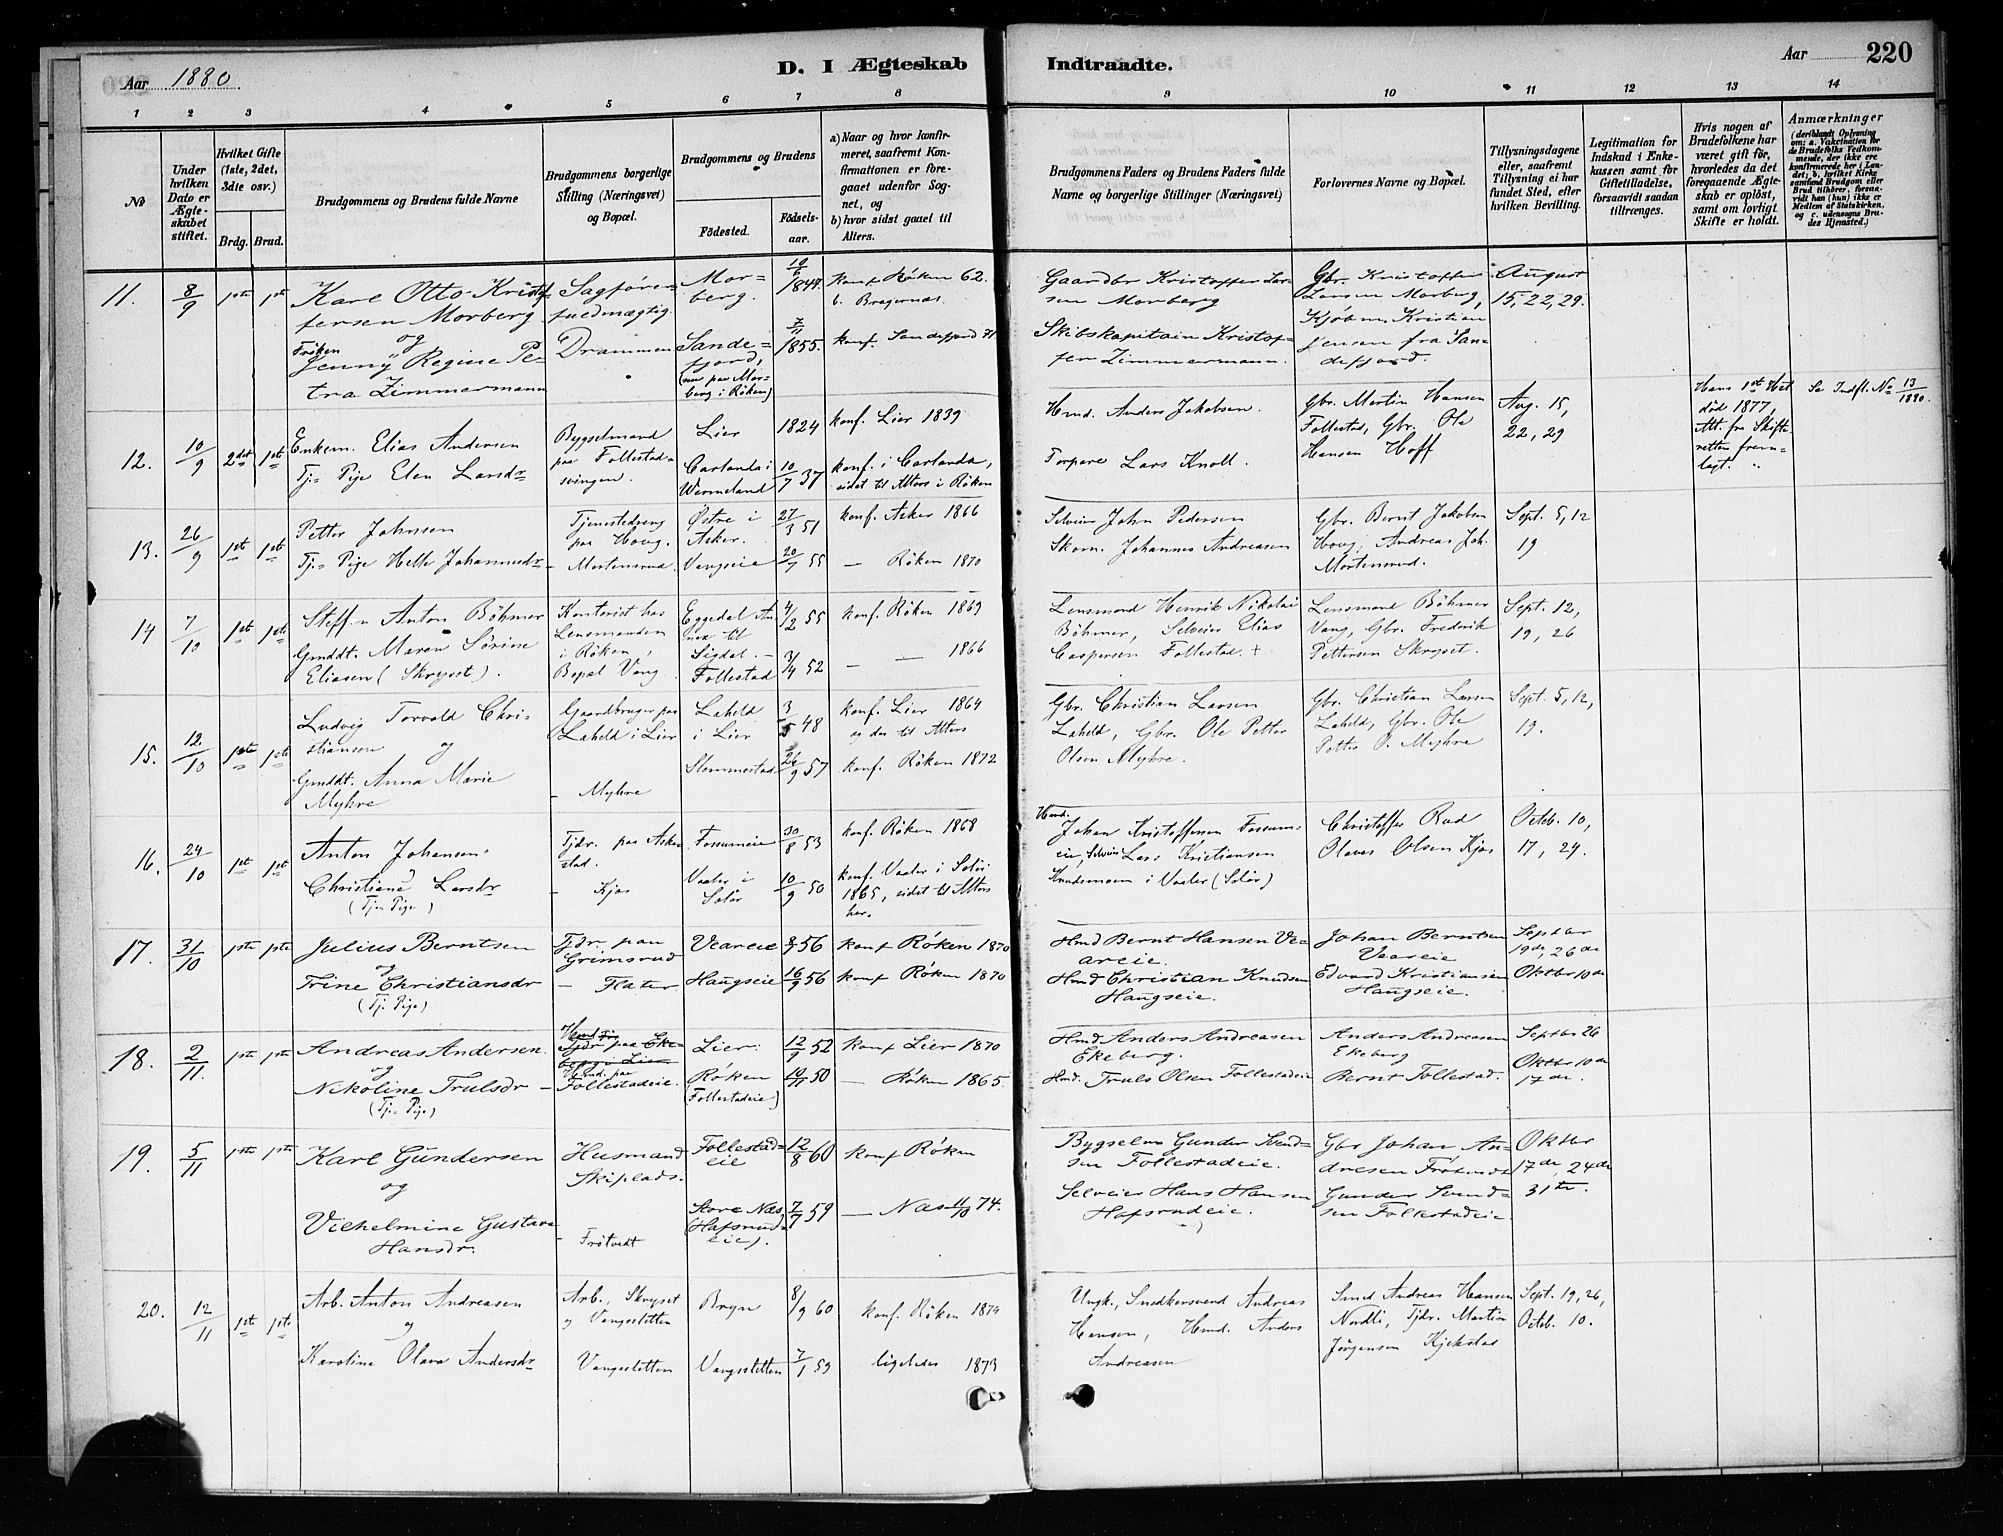 Aar 1880
D. I Ægteskab Indtraadte.
Aar
220
1 2 3 4 5 6 7 8 9 10 11 12 13 14
No
Under hvilken Dato er Ægteskabet stiftet.
Hvilket Gifte (1ste, 2det, 3die osv.)
Brdg. Brud.
Brudgommens og Brudens fulde Navne
Brudgommens borgerlige Stilling (Næringsvei) og Bopæl.
Brudgommens og Brudens
Födested.
Födselsaar.
a) Naar og hvor konfirmeret, saafremt Konfirmationen er foregaaet udenfor Sognet, og
b) hvor sidst gaaet til Alters.
Brudgommens Faders og Brudens Faders fulde Navne og borgerlige Stillinger (Næringsvei)
Forlovernes Navne og Bopæl.
Tillysningsdagene eller, saafremt Tillysning ei har fundet Sted, efter hvilken Bevilling.
Legitimation for Indskud i Enkekassen samt for Giftetilladelse, forsaavidt saadan tiltrænges.
Hvis nogen af Brudefolkene har været gift för, hvorledes da det foregaaende Ægteskab er oplöst, samt om lovligt Skifte er holdt.
Anmærkninger
(deriblandt Oplysning om: a. Vakcination for de Brudefolks Vedkommende, der ikke ere konfirmerede her i Landet; b. hvilket Kirkesamfund Brudgom eller Brud tilhörer, forsaavidt han (hun) ikke er Medlem af Statskirken, og c. udensogns Brudes Hjemsted.)
11. 8/9 1ste 1ste
Karl Otto Kristofersen Morberg
og
Fröken Jenny Regine Petra Zimmermann
Sagførerfuldmægtig
Drammen
Morberg.
Sandefjord, (nu paa Morberg i Røken)
1844
7/11 1855.
Konf Røken 62.
b. Bragernæs.
konf. Sandefjord 71
Gaardbr Kristoffer Larsen Morberg
Skibskapitain Kristoffer Zimmermann.
Gbr. Kristoffer Larsen Morberg,
Kjøbm. Kristian Jensen fra Sandefjord.
August
15, 22, 29.
12. 10/9 2det 1ste
Enkem. Elias Andersen
Tj. Pige Elen Larsdr
Bygselmand paa Follestadsvingen.
Lier 1824
Carlanda i Wermeland 10/7 37
konf. Lier 1839
konf. i Carlanda, sidst til Alters i Røken
Hmd. Anders Jakobsen.
Torpare Lars Knoll.
Gbr. Martin Hansen Follestad, Gbr. Ole Hansen Hoff
Aug. 15,
22, 29
Hans 1ste Hst. død 1877, Att. fra Skifteretten fremlagt.
Se Indfl. No 13/1880.
13. 26/9 1ste 1ste
Petter Johnsen
Tj. Pige Helle Johannesdr
Tjenestedreng paa Hovg.
- Mortensrud
Østre i Asker. 27/3 51
Vangseie 20/7 55
konf. Asker 1866
— Røken 1870
Selveier John Pedersen
Skom. Johannes Andreasen
Gbr. Bernt Jakobsen Hovg, Andreas Joh. Mortensrud.
Sept. 5, 12
19
14 7/10 1ste 1ste
Steffen Anton Böhmer
Gmddt. Maren Sörine Eliasen (Skryset).
Kontorist hos Lensmanden i Røken, Bopæl Vang
Eggedal Annex til Sigdal. 4/2 55
Follestad 3/4 52
konf. Røken 1869
— — 1866
Lensmand Henrik Nikolai Böhmer, Selveier Elias Caspersen Follestad. +
Lensmand Böhmer Vang, Gbr. Fredrik Pettersen Skryset.
Sept. 12,
19, 26
15. 12/10 1ste 1ste
Ludvig Torvald Christiansen
og
Gmddt. Anna Marie Myhre
Gaardbruger paa Laheld i Lier
- Myhre
Laheld i Lier 3/5 48
Slemmestad 26/9 57
konf. Lier 1864
konf. Røken 1872
Gbr. Christian Larsen Laheld, Gbr. Ole Petter Olsen Myhre.
Gbr. Christian Larsen Laheld, Gbr. Ole Petter O. Myhre
Sept. 5, 12,
19.
16. 24/10 1ste 1ste
Anton Johansen
Christiane Larsdr
(Tje. Pige)
Tjdr. paa Askestad.
- Kjos
Fossumeie 30/8 53
Vaaler i Solør 10/9 50
konf. Røken 1868
konf. Vaaler i Solør 1865, sidst til Alters her.
Hmd. Johan Kristoffersen Fossumeie, Selveier Lars Kristiansen Knudsmoen i Vaaler (Solør)
Christoffer Rud
Olaves Olsen Kjos
Octob. 10,
17, 24.
17. 31/10 1ste 1ste
Julius Berntsen
og
Trine Christiansdr
(Tj. Pige)
Tjdr. paa Grimsrud
- Flater
Veareie 56
Haugseie 16/9 56
konf Røken 1870
konf Røken 1870
Hmd Bernt Hansen Veareie.
Hmd Christian Knudsen Haugseie.
Johan Berntsen Veareie
Edvard Kristiansen Haugseie.
Septbr
19de, 26de
Oktbr 10de
18. 2/11. 1ste 1ste
Andreas Andersen.
og
Nikoline Trulsdr
(Tj. Pige)
Tjdr paa Ekeberg i Lier
Hmd. paa
- Follestadeie.
Lier. 12/9 52
Røken (Follestadeie) 19/11 50
konf Lier 1870
— Røken 1865.
Hmd Anders Andreasen Ekeberg.
Hmd. Truls Olsen Follestadeie
Anders Andreasen Ekeberg
Bernt Follestad.
Septbr 26
Oktbr 10de
17de.
19. 5/11 1ste 1ste
Karl Gundersen
og
Vilhelmine Gustava Hansdr.
Husmand Skiplads.
- Frötvedt
Follestadeie 12/8 60
Store Næs (Hafsrudeie). 7/7 59
konf Røken
— Næs 11/10 74.
Bygselm Gunder Svendsen Follestadeie.
Selveier Hans Hansen Hafsrudeie.
Gbr Johan Andresen Frötvedt
Gunder Svendsen Follestadeie
Oktbr
17de, 24de
31te.
20. 12/11 1ste 1ste
Arb. Anton Andreasen
og
Karoline Olava Andersdr
Arb., Skryset og Vangsstetten
Vangsstetten
Bryn 8/9 60
Vangsstetten 7/1 53
konf. Røken 1874
ligeledes 1873
Ungk., Snedkersvend Andreas Hansen, Hmd. Anders Andreasen
Smed Andreas Hansen Nordli, Tjdr. Martin Jørgensen Kjekstad
Sept. 19, 26,
Octob. 10.